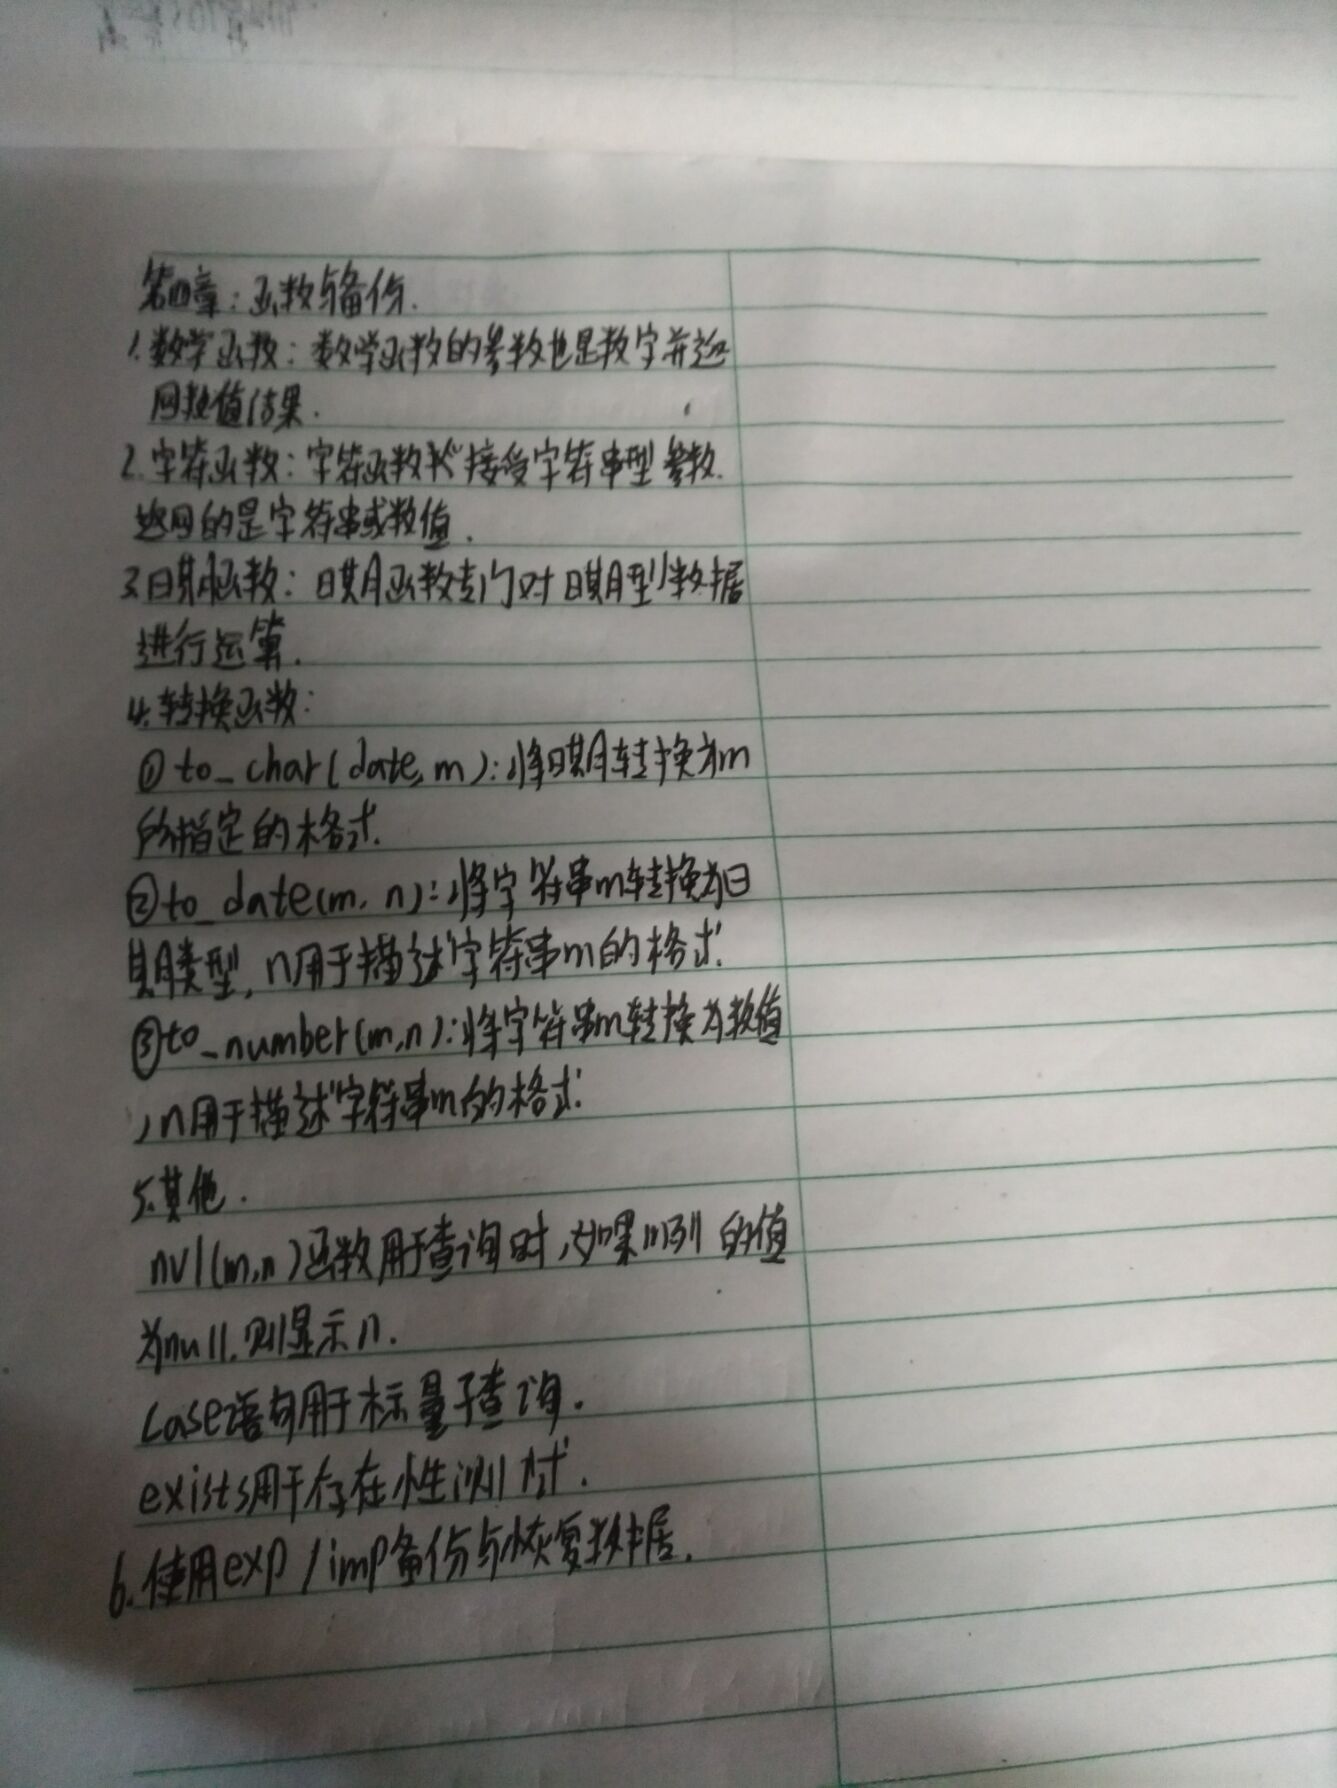 第四章：函数与备份.
1.数学函数：数学函数的参数也是数字并返
回数值结果.
2.字符函数：字符函数 接受字符串型参数.
返回的是字符串或数值.
3.日期函数：日期函数专门对日期型数据
进行运算.
4.转换函数：
①to_char(date,m):将日期转换为m
所指定的格式.
②to_date(m,n):将字符串m转换为日
期类型,n用于描述字符串m的格式.
③to_number(m,n):将字符串m转换为数值
,n用于描述字符串m的格式.
5.其他.
nvl(m,n)函数用于查询时,如果m列的值
为null,则显示n.
case语句用于标量子查询.
exists用于存在性测试.
6.使用exp/imp备份与恢复数据.